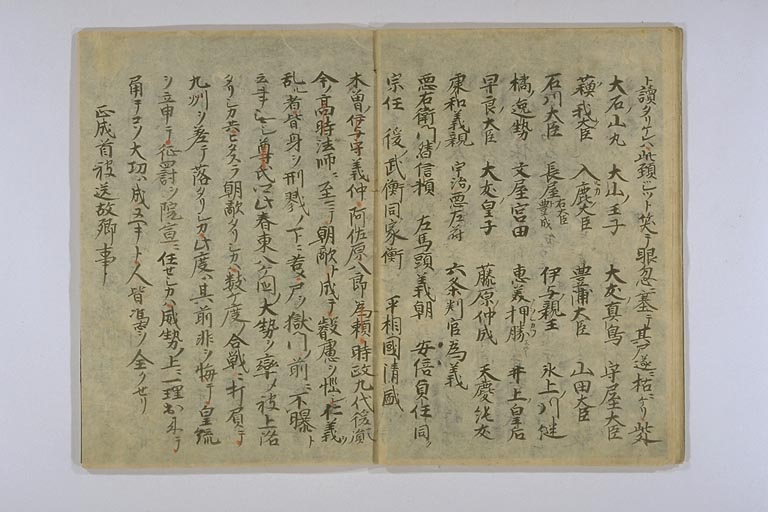 ト讀タリケレハ此頚ヒツト笑テ眼忽ニ塞テ其尸遂ニ枯ニケリ此外
大石山丸 大山王子 大友真鳥 守屋大臣
蘓我大臣 入鹿大臣 豊浦大臣 山田大臣
石川大臣 長屋右大臣豊成 伊与親王 氷上川継
橘逸勢 文屋宮田 恵美押勝 井上皇后
早良大臣 大友皇子 藤原仲成 天慶純友
康和義親 宇治悪左府 六条判官為義
悪右衛門督信頼 左馬頭義朝 安倍貞任同
宗任 後ノ武衡同家衡 平相國清盛
木曽伊与守義仲 阿佐原八郎為頼 時政九代後胤
今ノ高時法師ニ至ニテ朝敵ト成テ叡慮ヲ悩シ仁義ヲ
乱ル者皆身ヲ刑戮ノ下ニ苦メ尸ヲ獄門ノ前ニ不曝ト
云事ナシ尊氏卿此春東八ケ国ノ大勢ヲ率メ被上洛
タリシカ共ヒタスラ朝敵タリシカハ数ケ度ノ合戦ニ打負テ
九州ヲ差テ落タリシカ此度ハ其前非ヲ悔テ皇統
ヲ立申テ征罸ヲ院宣ニ任セシカハ威勢ノ上ニ一理出来テ
甬チコソ大功ハ成ヌヘキト人皆馮ヲ全クセリ
正成首被送故郷事